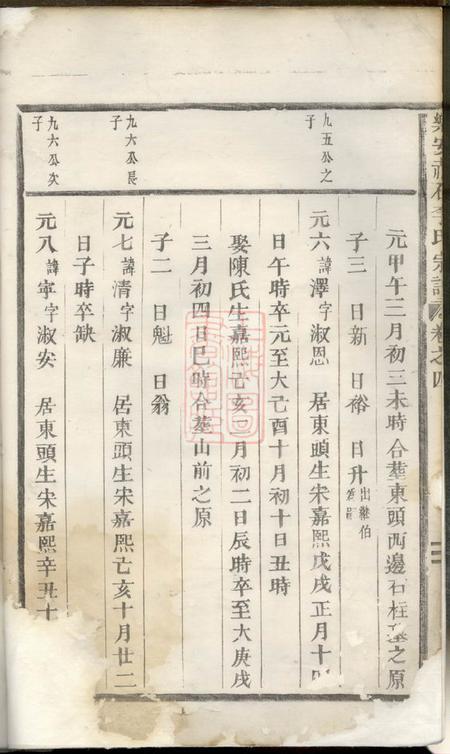 元甲午三月初三未時合塟東頭西邊石柱之原
子三 日新 日裕 日升出繼伯
九五公之子
元六諱澤字淑恩 居東頭生宋嘉熙戊戌正月十
日午時卒元至大己酉十月初十日丑時
娶陳氏生嘉熙己亥二月初二日辰時卒至大庚戌
三月初四日巳時合塟山前之原
子二 日魁 日翁
九六公長子
元七諱清字淑廉 居東頭生宋嘉熙己亥十月廿二
日子時卒缺
九六公次子
元八諱寧字淑安 居東頭生宋嘉熙辛丑十
氏宗譜 卷之四